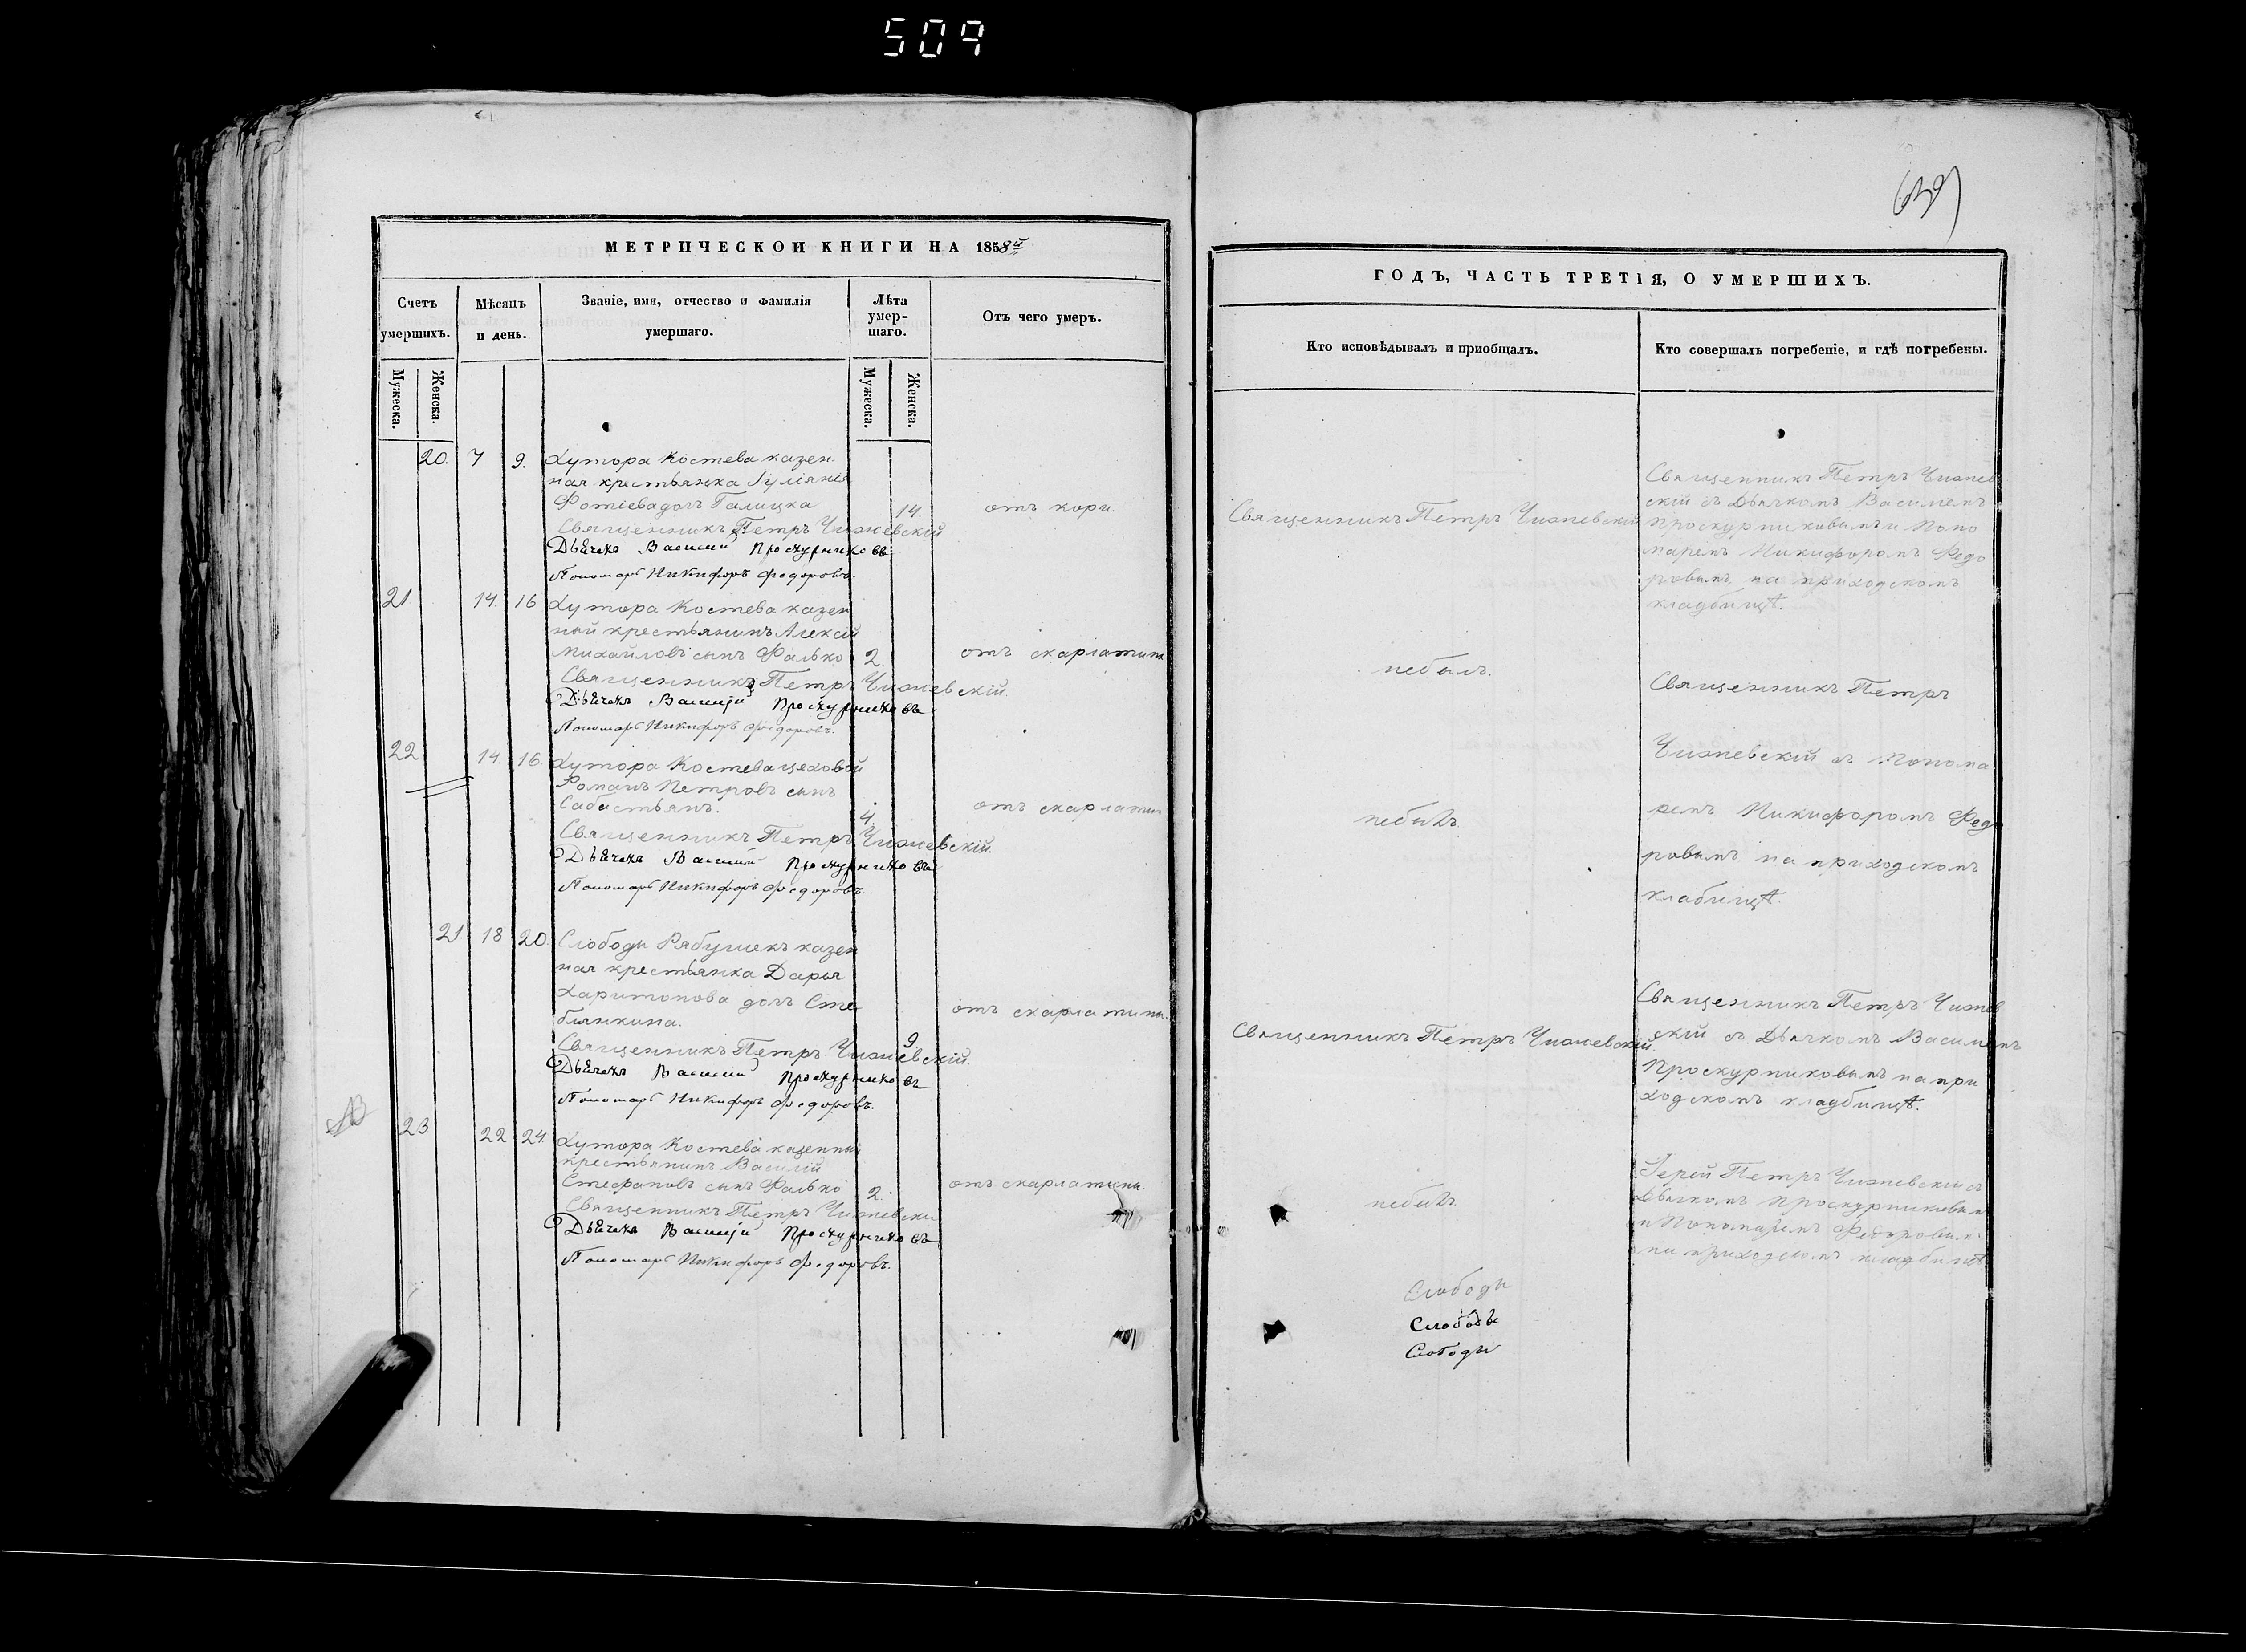 509
МЕТРИЧЕСКОЙ КНИГИ НА 1858й
Счетъ умершихъ.
Мѣсяцъ и день.
Званіе, имя, отчество и фамилія умершаго.
Лѣта умершаго.
Отъ чего умеръ.
Мужеска.
Женска.
Мужеска.
Женска.
20. 7 9. Хутора Костева казен
ная крестьянка
Фотіева дочь Галицка 14. отъ кори.
Священникъ Петръ Чижевскій
Дьячекъ Василій Проскурниковъ
Пономарь Никифоръ Федоровъ.
21. 14. 16 Хутора Костева казен
ный крестьянинъ Алексій
Михайловъ сынъ Фалько 2. отъ скарлатины
Священникъ Петръ Чижевскій.
Дьячекъ Василій Проскурниковъ
Пономарь Никифоръ Федоровъ.
22 14. 16. Хутора Костева цеховой
Романъ Петровъ сынъ
Сабастьянъ. 4. отъ скарлатин
Священникъ Петръ Чижевскій.
Дьячекъ Василій Проскурниковъ
Пономарь Никифоръ Федоровъ.
21. 18 20. Слободы Рябушекъ казен
ная крестьянка Дарья
Харитонова дочь Сте
блянкина. 9. отъ скарлатины.
Священникъ Петръ Чижевскій.
Дьячекъ Василій Проскурниковъ
Пономарь Никифоръ Федоровъ.
23 22 24. Хутора Костева казенный
крестьянинъ Василій
Стефановъ сынъ Фалько 2. отъ скарлатины.
Священникъ Петръ Чижевски
Дьячекъ Василій Проскурниковъ
Пономарь Никифоръ Федоровъ.
ГОДЪ, ЧАСТЬ ТРЕТІЯ, О УМЕРШИХЪ.
Кто исповѣдывалъ и пріобщалъ.
Кто совершалъ погребеніе, и гдѣ погребены.
Священникъ Петръ Чижевскій
Священникъ Петръ Чижев
скій съ Дьячкомъ Василіемъ
Проскурниковымъ и Поно
маремъ Никифоромъ Федо
ровымъ на приходскомъ
кладбищѣ.
небылъ.
Священникъ Петръ
Чижевскій съ Понома
небылъ
ремъ Никифоромъ Федо
ровымъ на приходскомъ
клабищѣ.
Священникъ Петръ Чижевскій
Священникъ Петръ Чижев
скій съ Дьячкомъ Василіемъ
Проскурниковымъ на при
ходскомъ кладбищѣ.
небылъ
Іерей Петръ Чижевски съ
Дьячкомъ Проскурниковым
и Пономаремъ Федоровым
на приходскомъ кладбищѣ
Слободы
Слободы
Слободы